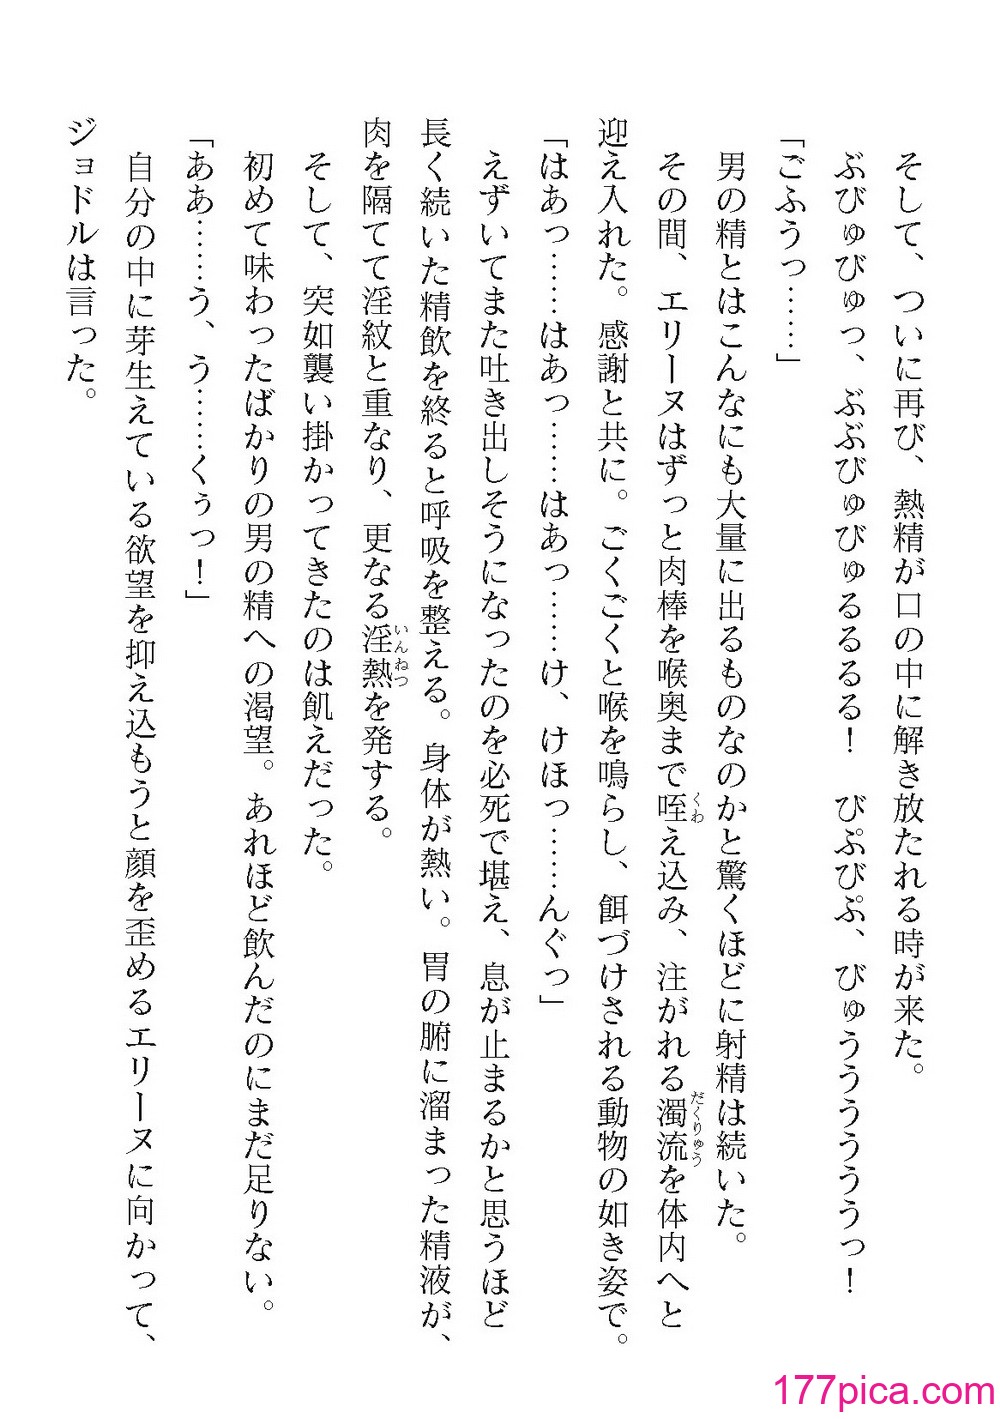 そして、ついに再び、熱精が口の中に解き放たれる時が来た。
ぶびゅびゅっ、ぶぶびゅびゅるるるる！　びぷびぷ、びゅうううううっ！
「ごふうっ……」
男の精とはこんなにも大量に出るものなのかと驚くほどに射精は続いた。
その間、エリーヌはずっと肉棒を喉奥まで咥え込み、注がれる濁流を体内へと
くわ
だくりゅう
迎え入れた。感謝と共に。ごくごくと喉を鳴らし、餌づけされる動物の如き姿で。
「はあっ……はあっ……はあっ……け、けほっ……んぐっ」
えずいてまた吐き出しそうになったのを必死で堪え、息が止まるかと思うほど
長く続いた精飲を終ると呼吸を整える。身体が熱い。胃の腑に溜まった精液が、
肉を隔てて淫紋と重なり、更なる淫熱を発する。
いんねつ
そして、突如襲い掛かってきたのは飢えだった。
初めて味わったばかりの男の精への渇望。あれほど飲んだのにまだ足りない。
「ああ……う、う……くぅっ！」
自分の中に芽生えている欲望を抑え込もうと顔を歪めるエリーヌに向かって、
ジョドルは言った。
177pica.com